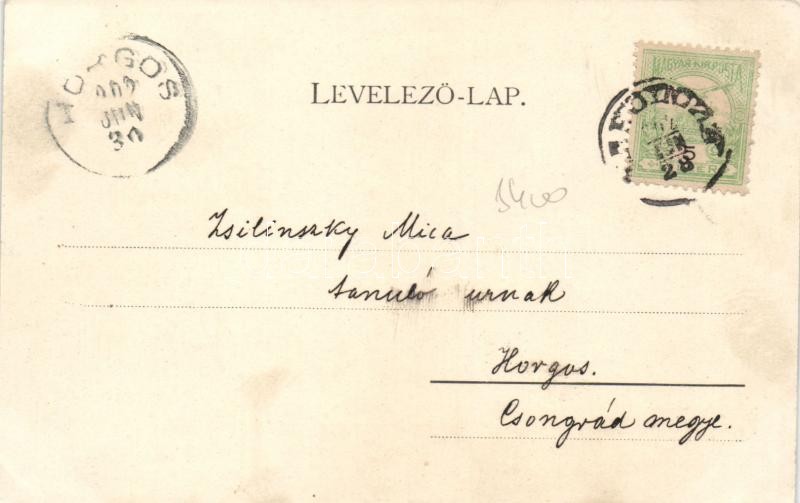 HORGOS
JUN
30
LEVELEZŐ-LAP.
MAGYAR KIR. POSTA
Zsilinszky Mica
tanuló urnak
Horgos.
Csongrád megye.